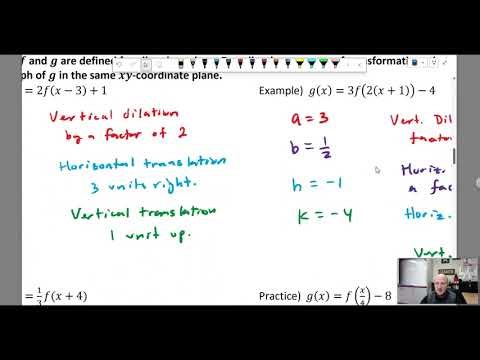 f and g are defined
formation
ph of g in the same xy-coordinate plane.
= 2f(x − 3) + 1
Vertical dilation
by a factor of 2
Horizontal translation
3 units right.
Vertical translation
1 unit up.
= 1/3 f(x + 4)
Example) g(x) = 3f(2(x + 1)) − 4
a = 3
b = 1/2
h = -1
k = -4
Vert. Dil
facto
Horiz.
a fac
Horiz.
Vert.
Practice) g(x) = f(x/4) − 8